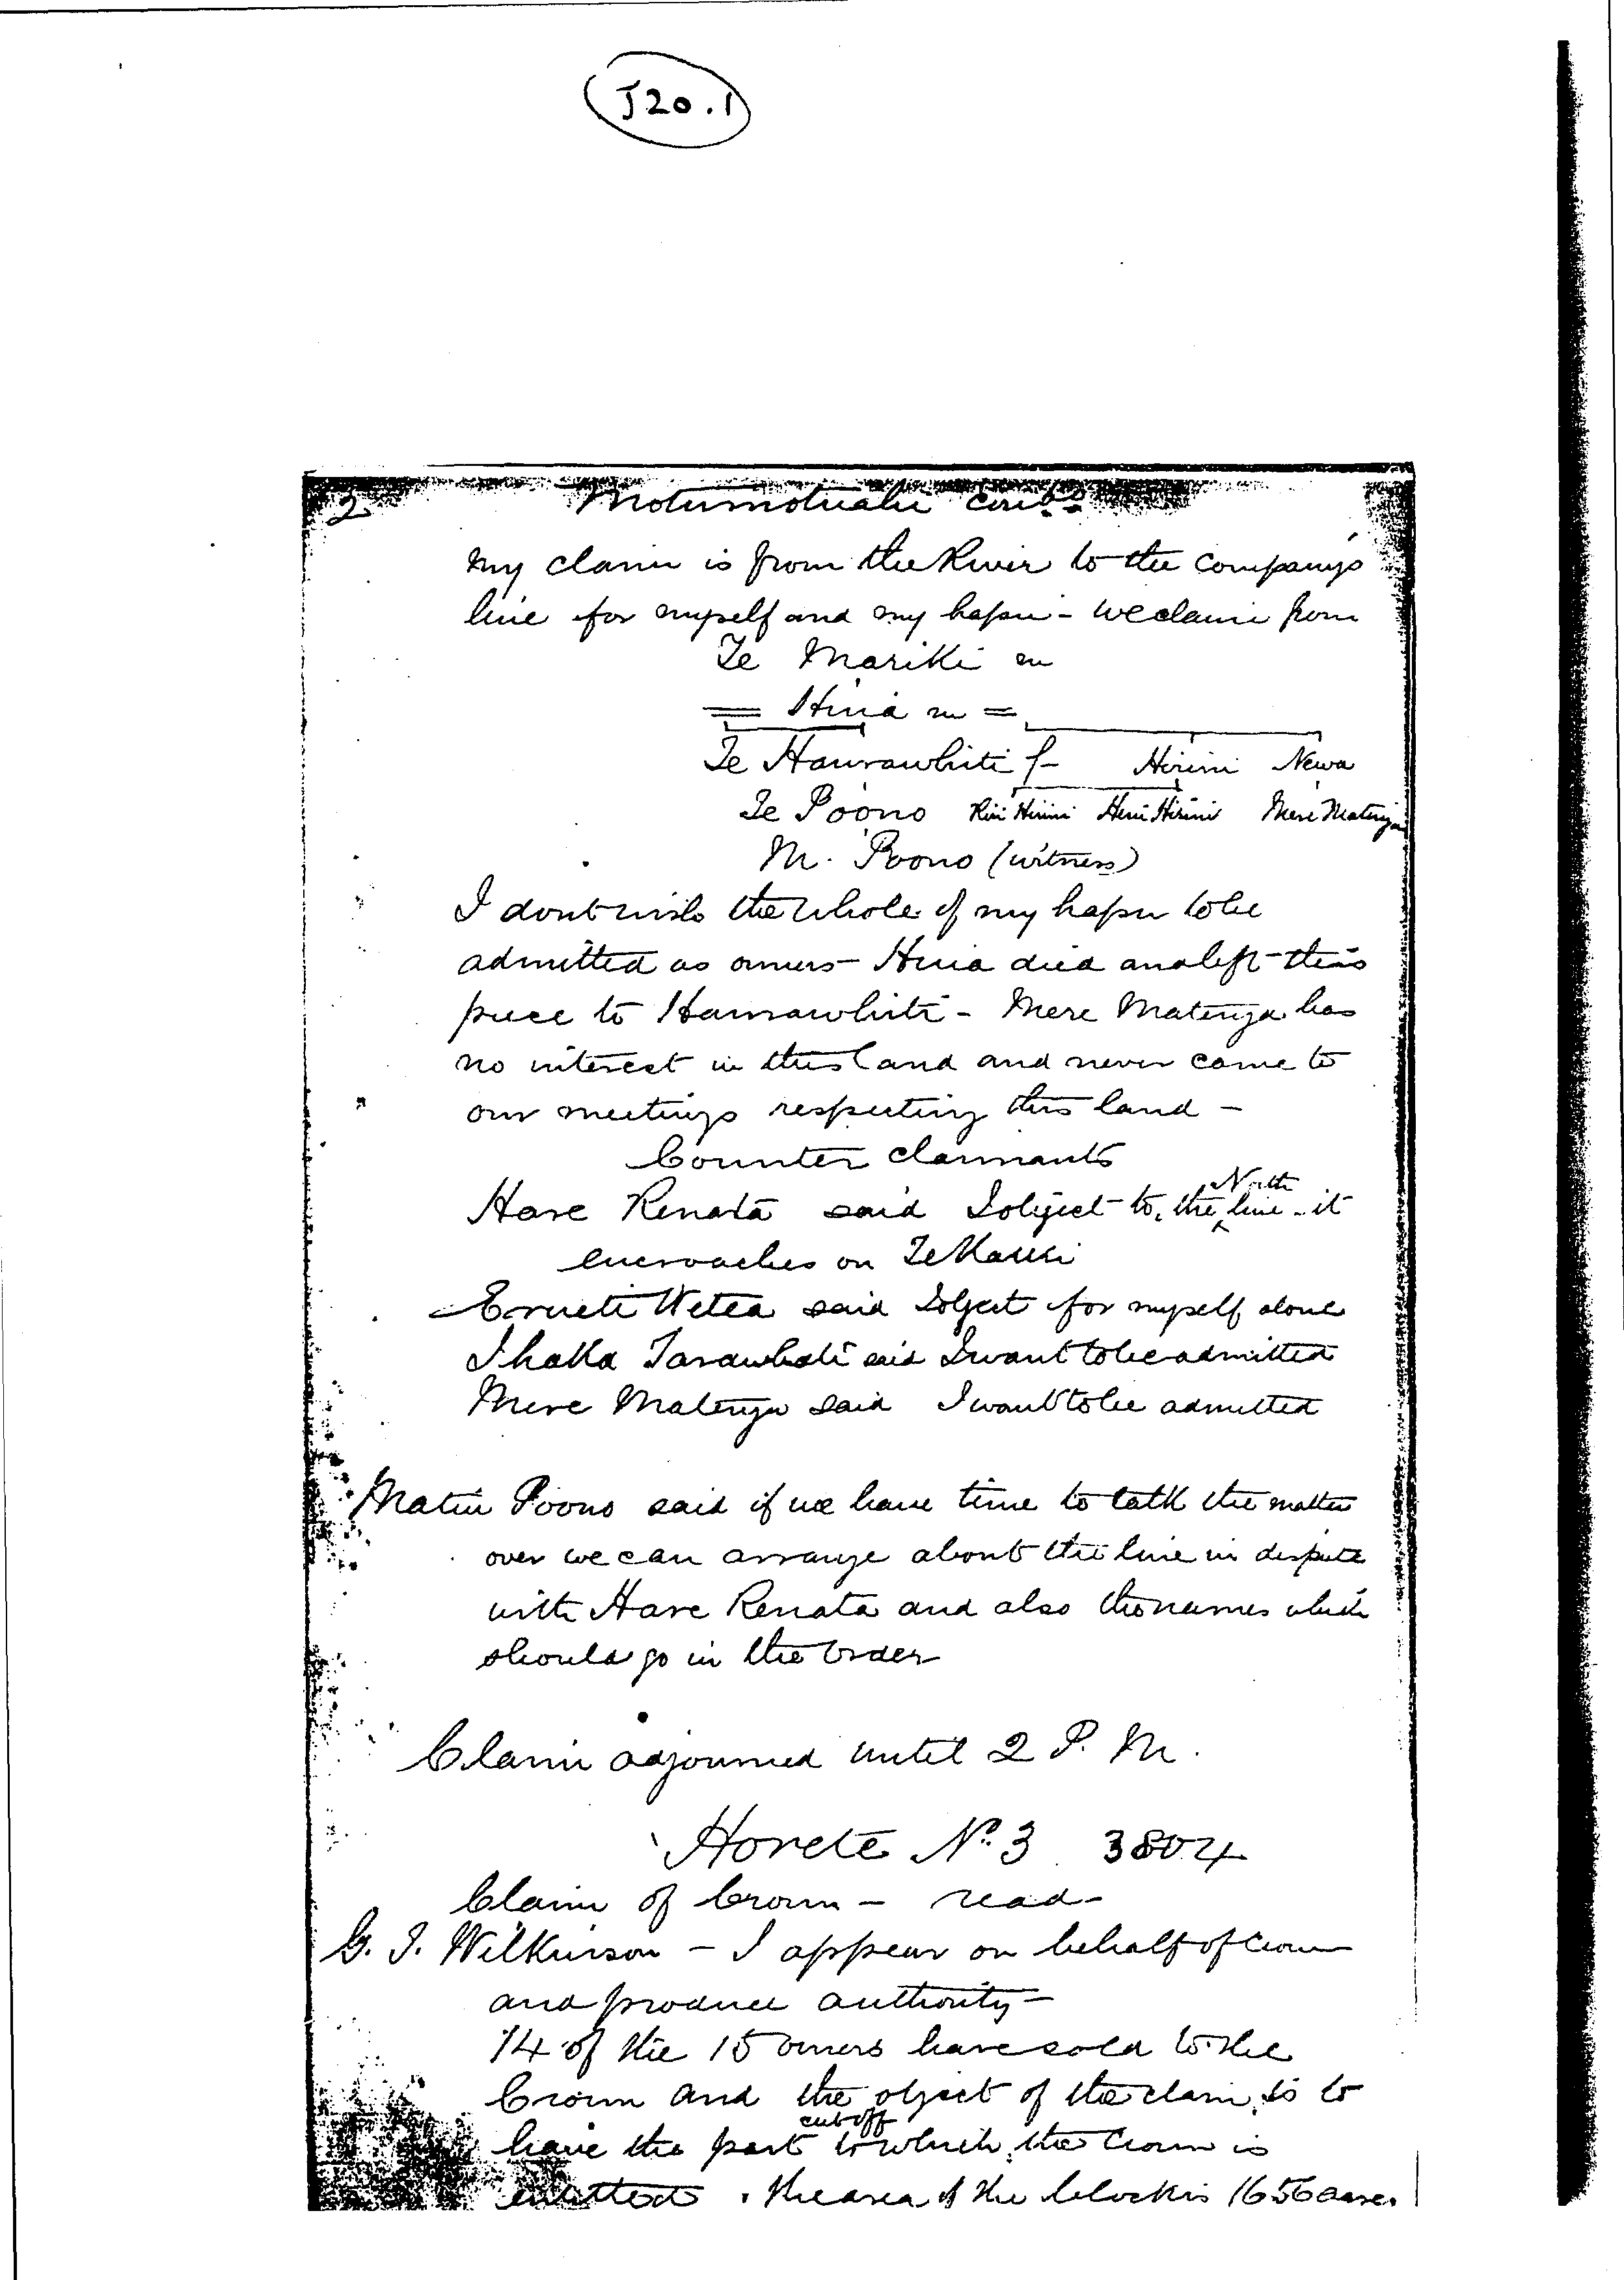 J20.1
2 Motumotuahi contd
My claim is from the River to the Company's
line for myself and my hapu - We claim from
Te Mariki m
= Hina m =
Te Haurawhiti f Hirini Newa
Te Poono Riri Hirini Heni Hirini Mere Matenga
M. Poono (witness)
I dont wish the whole of my hapu to be
admitted as owners - Hina died and left this
piece to Haurawhiti - Mere Matenga has
no interest in this land and never came to
our meetings respecting this land -
Counter Claimants
North
Hare Renata said I object to the line - it
encroaches on Te
Erueti Wetea said I object for myself alone
Ihaka said I want to be admitted
Mere Matenga said I want to be admitted
Matiu Poono said if we have time to talk the matter
over we can arrange about the line in dispute
with Hare Renata and also the names which
should go in the Order
Claim adjourned until 2 P. M.
Horete No. 3 3804
Claim of Crown - read -
G. T. Wilkinson - I appear on behalf of Crown
and produce authority -
14 of the 15 owners have sold to the
Crown and the object of the claim is to
cut off
have the part to which the Crown is
entitled . The area of the block is 1656 acres.